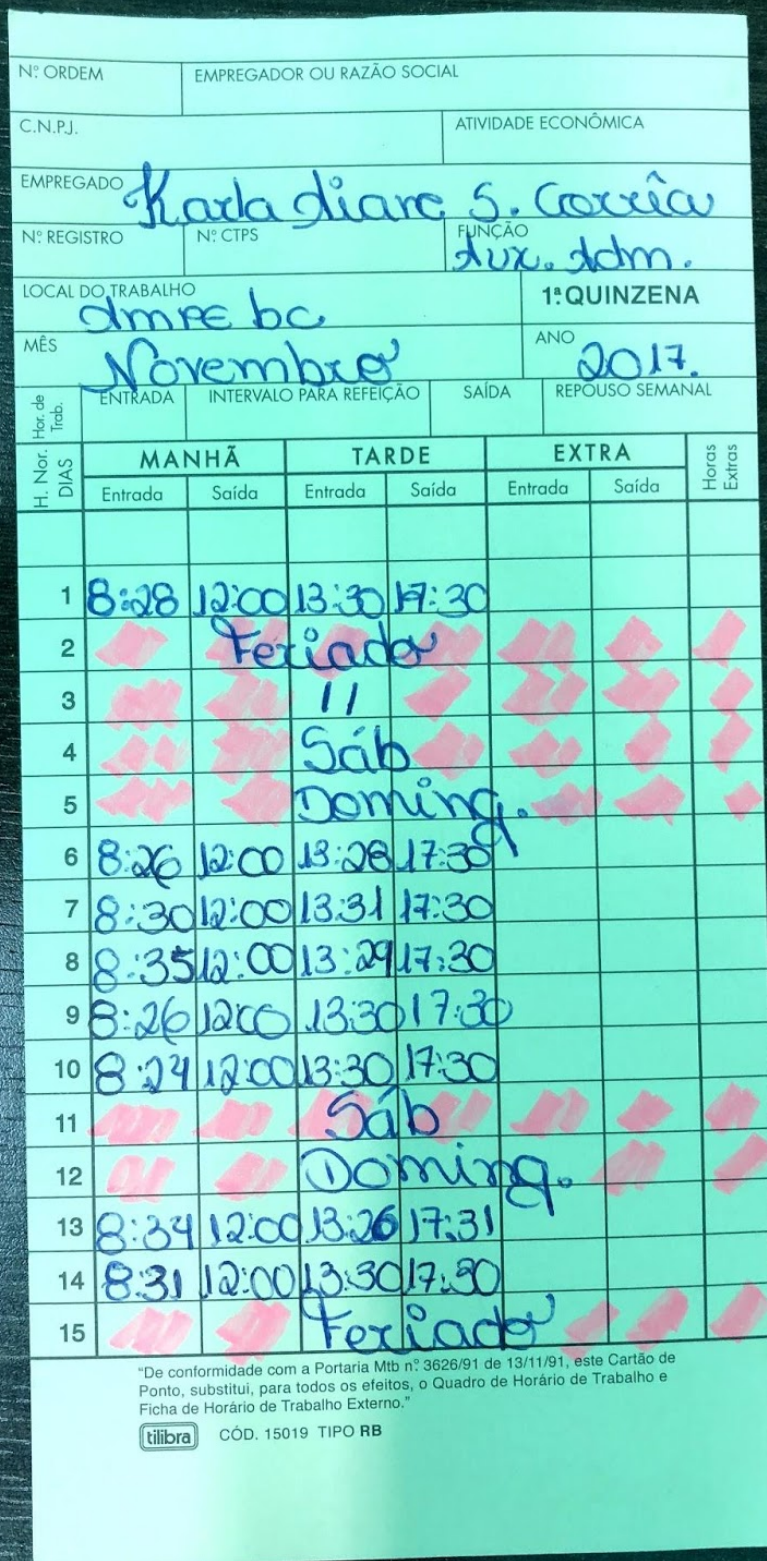 Nº ORDEM EMPREGADOR OU RAZÃO SOCIAL
C.N.P.J. ATIVIDADE ECONÔMICA
EMPREGADO Karla diane S. Corrêa
Nº REGISTRO Nº CTPS FUNÇÃO Aux. Adm.
LOCAL DO TRABALHO AMPE bc 1ª QUINZENA
MÊS Novembro ANO 2017.
Hor. de Trab. ENTRADA INTERVALO PARA REFEIÇÃO SAÍDA REPOUSO SEMANAL
H. Nor. DIAS MANHÃ TARDE EXTRA Horas Extras
Entrada Saída Entrada Saída Entrada Saída
1 8:28 12:00 13:30 17:30
2 Feriado
3 11
4 Sáb
5 Doming.
6 8:26 12:00 13:28 17:30
7 8:30 12:00 13:31 17:30
8 8:35 12:00 13:29 17:30
9 8:26 12:00 13:30 17:30
10 8:24 12:00 13:30 17:30
11 Sáb
12 Doming.
13 8:34 12:00 13:26 17:31
14 8:31 12:00 13:30 17:30
15 Feriado
"De conformidade com a Portaria Mtb nº 3626/91 de 13/11/91, este Cartão de
Ponto, substitui, para todos os efeitos, o Quadro de Horário de Trabalho e
Ficha de Horário de Trabalho Externo."
tilibra CÓD. 15019 TIPO RB